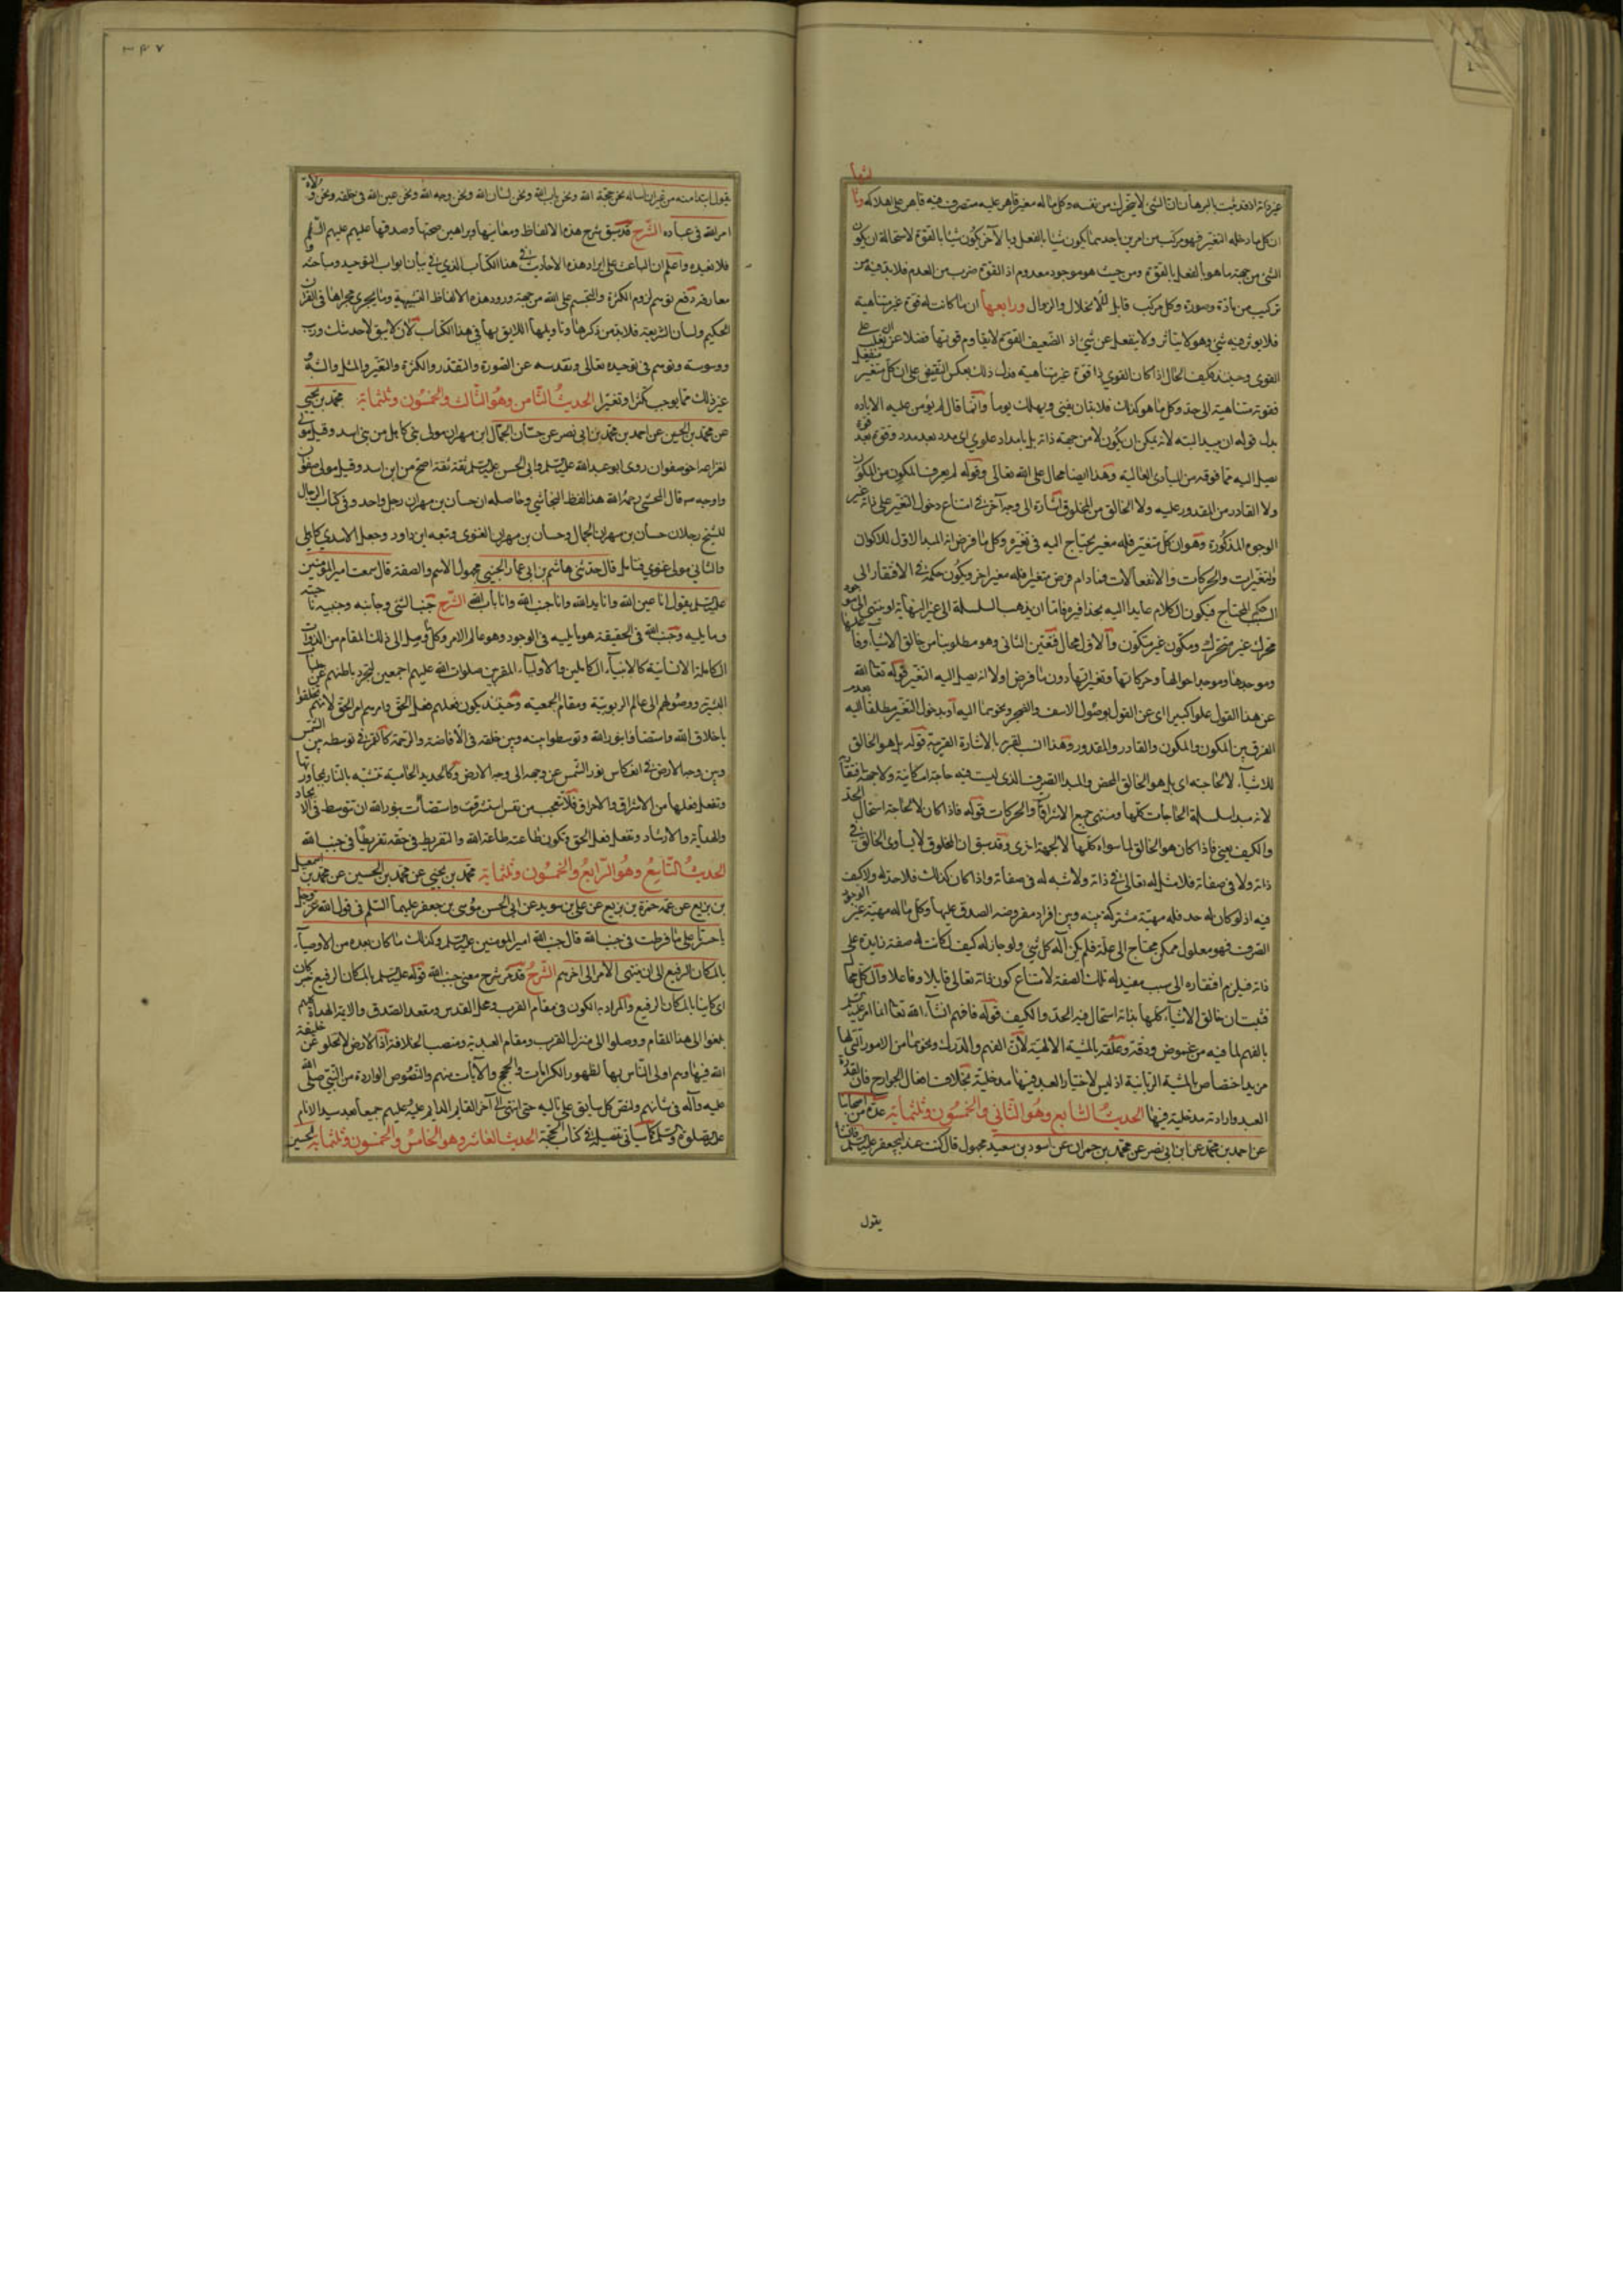 غيره ذاته اذ قد ثبت بالبرهان ان الشئ لا يتحرك من نفسه وكل ما له مغير قاهر عليه متصرف فيه قاهر على اهلاكه
ان كل ما دخله التغير فهو مركب من امرين باحدهما يكون شيئا بالفعل وبالآخر يكون شيئا بالقوة لاستحالة ان يكون
الشئ من جهة ما هو بالفعل بالقوة ومن حيث هو موجود معدوم اذ القوة ضرب من العدم فلا بد فيه من
تركيب من مادة وصورة وكل مركب قابل للانحلال والزوال ورابعها ان ما كانت له قوة غير متناهية
فلا يؤثر فيه شئ وهو لا يتأثر ولا ينفعل عن شئ اذ الضعيف القوة لا يقاوم قويها فضلا عن ان يغلب على
القوى وحينئذ فكيف الحال اذا كان القوى ذا قوة غير متناهية فدل ذلك بعكس النقيض على ان كل متغير منفعل
فقوته متناهية الى حد وكل ما هو كذلك فلا بد ان يفنى ويهلك يوما وانما قال لم يؤمن عليه الابادة
بدل قوله ان يبيد البتة لانه يمكن ان يكون لا من جهة ذاته بل بامداد علوى اى مدد بعد مدد وقوة بعد قوة
يصل اليه مما فوقه من المبادى العالية وهذا ايضا محال على الله تعالى وقوله لم يعرف المكون من المكون
ولا القادر من المقدور عليه ولا الخالق من المخلوق اشارة الى وجه آخر فى امتناع دخول التغير على ذاته غير
الوجوه المذكورة وهو ان كل متغير فله مغير يحتاج اليه فى تغيره وكل ما فرض انه المبدا الاول للاكوان
والتغيرات والحركات والانفعالات فمادام فرض متغيرا فله مغير اخر ويكون حكمه فى الافتقار الى
السبب المحتاج فيكون الكلام عايدا اليه بحذافيره فاما ان يذهب السلسلة الى غير النهاية او ينتهى الى
محرك غير متحرك ومكون غير متكون والاول محال فتعين الثانى وهو مطلوبنا من خالق الاشياء
وموجدها وموجد احوالها وحركاتها وتغيراتها دون ما فرض اولا انه يصل اليه التغير قوله تعالى الله
عن هذا القول علوا كبيرا اى عن القول بوصول الاسف والضجر ونحوهما اليه او بدخول التغير مطلقا اليه
الفرق بين المكون والمكون والقادر والمقدور وهذا انسب بقرب الاشارة القريبة قوله بل هو الخالق
للاشياء لا لحاجة اى بل هو الخالق المحض والمبدا الصرف الذى ليست فيه حاجة امكانية ولا جهة افتقارية
لانه مبدا سلسلة الحاجات كلها ومنتهى جميع الاشواق والحركات قوله فاذا كان لا لحاجة استحال الحد
والكيف يعنى فاذا كان هو الخالق لما سواه كلها لا لجهة اخرى وقد سبق ان المخلوق لا يساوى الخالق فى
ذاته ولا فى صفاته فلا مثل له تعالى فى ذاته ولا شبه له فى صفاته واذا كان كذلك فلا حد له ولا كيف
فيه اذ لو كان له حد فله مهية مشتركة بينه وبين افراد مفروضة الصدق عليها وكل ما له مهية غير الوجود
الصرف فهو معلول ممكن محتاج الى علة فلم يكن اله كل شئ ولو جاز له كيف لكانت له صفة زايدة على
ذاته فيلزم افتقاره الى سبب مفيد له تلك الصفة لامتناع كون ذاته تعالى قابلا وفاعلا والكل محال
فثبت ان خالق الاشياء كلها بذاته استحال فيه الحد والكيف قوله فافهم انشاء الله تعالى انما امر عليه السلم
بالفهم لما فيه من غموض ودقة وعلقه بالمشية الالهية لان الفهم والدرك ونحوهما من الامور التى لها
مزيد اختصاص بالمشية الربانية اذ ليس لاختيار العبد فيها مدخلية بخلاف افعال الجوارح فان لقدرة
العبد وارادته مدخلية فيها الحديث السابع وهو الثانى والخمسون وثلثمائة عدة من اصحابنا
عن احمد بن محمد عن ابن ابى نصر عن محمد بن حمران عن اسود بن سعيد مجهول قال كنت عند ابى جعفر عليه السلم فانشأ
يقول
٣٤٧
يقول ابتداء منه من غير ان اساله نحن حجة الله ونحن باب الله ونحن لسان الله ونحن وجه الله ونحن عين الله فى خلقه ونحن ولاة
امر الله فى عباده الشرح قد سبق شرح هذه الالفاظ ومعانيها وبراهين صحتها وصدقها عليهم عليهم السلم
فلا نعيده واعلم ان الباعث على ايراد هذه الاحاديث فى هذا الكتاب الذى فى بيان ابواب التوحيد ومباحثه
معارفه دفع توهم لزوم الكثرة والتجسم على الله من جهة ورود هذه الالفاظ التشبيهية وما يجرى مجراها فى القرآن
الحكيم ولسان الشريعة فلا بد من ذكرها وتاويلها اللايق بها فى هذا الكتاب لان لا يبق لاحد شك وريب
ووسوسة وتوهم فى توحيده تعالى وتقدسه عن الصورة والتقدر والكثرة والتغير والمثل والشبه و
غير ذلك مما يوجب تكثرا وتغيرا الحديث الثامن وهو الثالث والخمسون وثلثمائة محمد بن يحيى
عن محمد بن الحسين عن احمد بن محمد بن ابى نصر عن حسان الجمال ابن مهران مولى بنى كاهل من بنى اسد وقيل مولى
لغنى اخو صفوان روى ابو عبد الله عليه السلم وابى الحسن عليه السلم ثقة ثقة اصح من ابن اسد وقيل مولى صفوان
واوجه صه قال المحشى رحمه الله هذا لفظ النجاشى وحاصله ان حسان بن مهران رجل واحد وفى كتاب الرجال
للشيخ رجلان حسان بن مهران الجمال وحسان بن مهران الغنوى وتبعه ابن داود وجعل الاسدى كاهلى
والثانى مولى غنوى فتامل قال حدثنى هاشم بن ابى عمار الجنبى مجهول الاسم والصفة قال سمعت امير المؤمنين
عليه السلم يقول انا عين الله وانا يد الله وانا جنب الله وانا باب الله الشرح جنب الشئ وجانبه وجنبيه
وما يليه وجنب الله فى الحقيقة هو ما يليه فى الوجود وهو عالم الامر وكل من وصل الى ذلك المقام من الذوات
الكاملة الانسانية كالانبياء الكاملين والاولياء المقربين صلوات الله عليهم اجمعين لتجرد باطنهم عن جلباب
البشرية ووصولهم الى عالم الربوبية ومقام الجمعية وحينئذ يكون فعلهم فعل الحق وامرهم امر الحق لانهم تخلقوا
باخلاق الله واستضاؤا بنور الله وتوسطوا بينه وبين خلقه فى الافاضة والرحمة كالقمر فى توسطه بين الشمس
وبين وجه الارض فى انعكاس نور الشمس عن وجهه الى وجه الارض وكالحديد الحامية تتشبه بالنار بمجاورتها
وتفعل فعلها من الاشراق والاحراق فلا تعجب من نفس استشرقت واستضاءت بنور الله ان تتوسط فى الايجاد
والهداية والارشاد وتفعل فعل الحق وتكون طاعته طاعة الله والتفريط فى حقه تفريطا فى جنب الله
الحديث التاسع وهو الرابع والخمسون وثلثمائة محمد بن يحيى عن محمد بن الحسين عن محمد بن اسمعيل
بن بزيع عن عمه حمزة بن بزيع عن على بن سويد عن ابى الحسن موسى بن جعفر عليهما السلم فى قول الله عز وجل
يا حسرتا على ما فرطت فى جنب الله قال جنب الله امير المؤمنين عليه السلم وكذلك ما كان بعده من الاوصياء
بالمكان الرفيع الى ان ينتهى الامر الى اخرهم الشرح قد مر شرح معنى جنب الله قوله عليه السلم بالمكان الرفيع خبر كان
اى كاينا بالمكان الرفيع والمراد به الكون فى مقام القرب ومحل القدس ومقعد الصدق والائمة الهداة
بلغوا الى هذا المقام ووصلوا الى منزل القرب ومقام العندية ومنصب الخلافة اذ الارض لا تخلو عن خليفة
الله فيها وهم اولى الناس بها لظهور الكرامات والحجج والآيات منهم والنصوص الواردة من النبى صلى الله
عليه وآله فى شانهم ولنص كل سابق على تاليه حتى انتهى الى آخر القايم الدايم عليه وعليهم جميعا بعد سيد الانام
عليه الصلوة والسلم كما سياتى تفصيله فى كتاب الحجة الحديث العاشر وهو الخامس والخمسون وثلثمائة الحسين